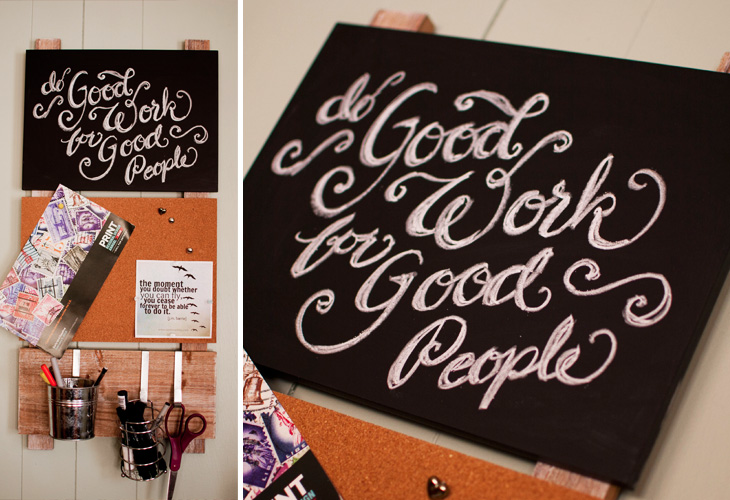 do Good
Work
for Good
People
PRINT
the moment
you doubt whether
you can fly,
you cease
forever to be able
to do it.
do Good
Work
for Good
People
PRINT